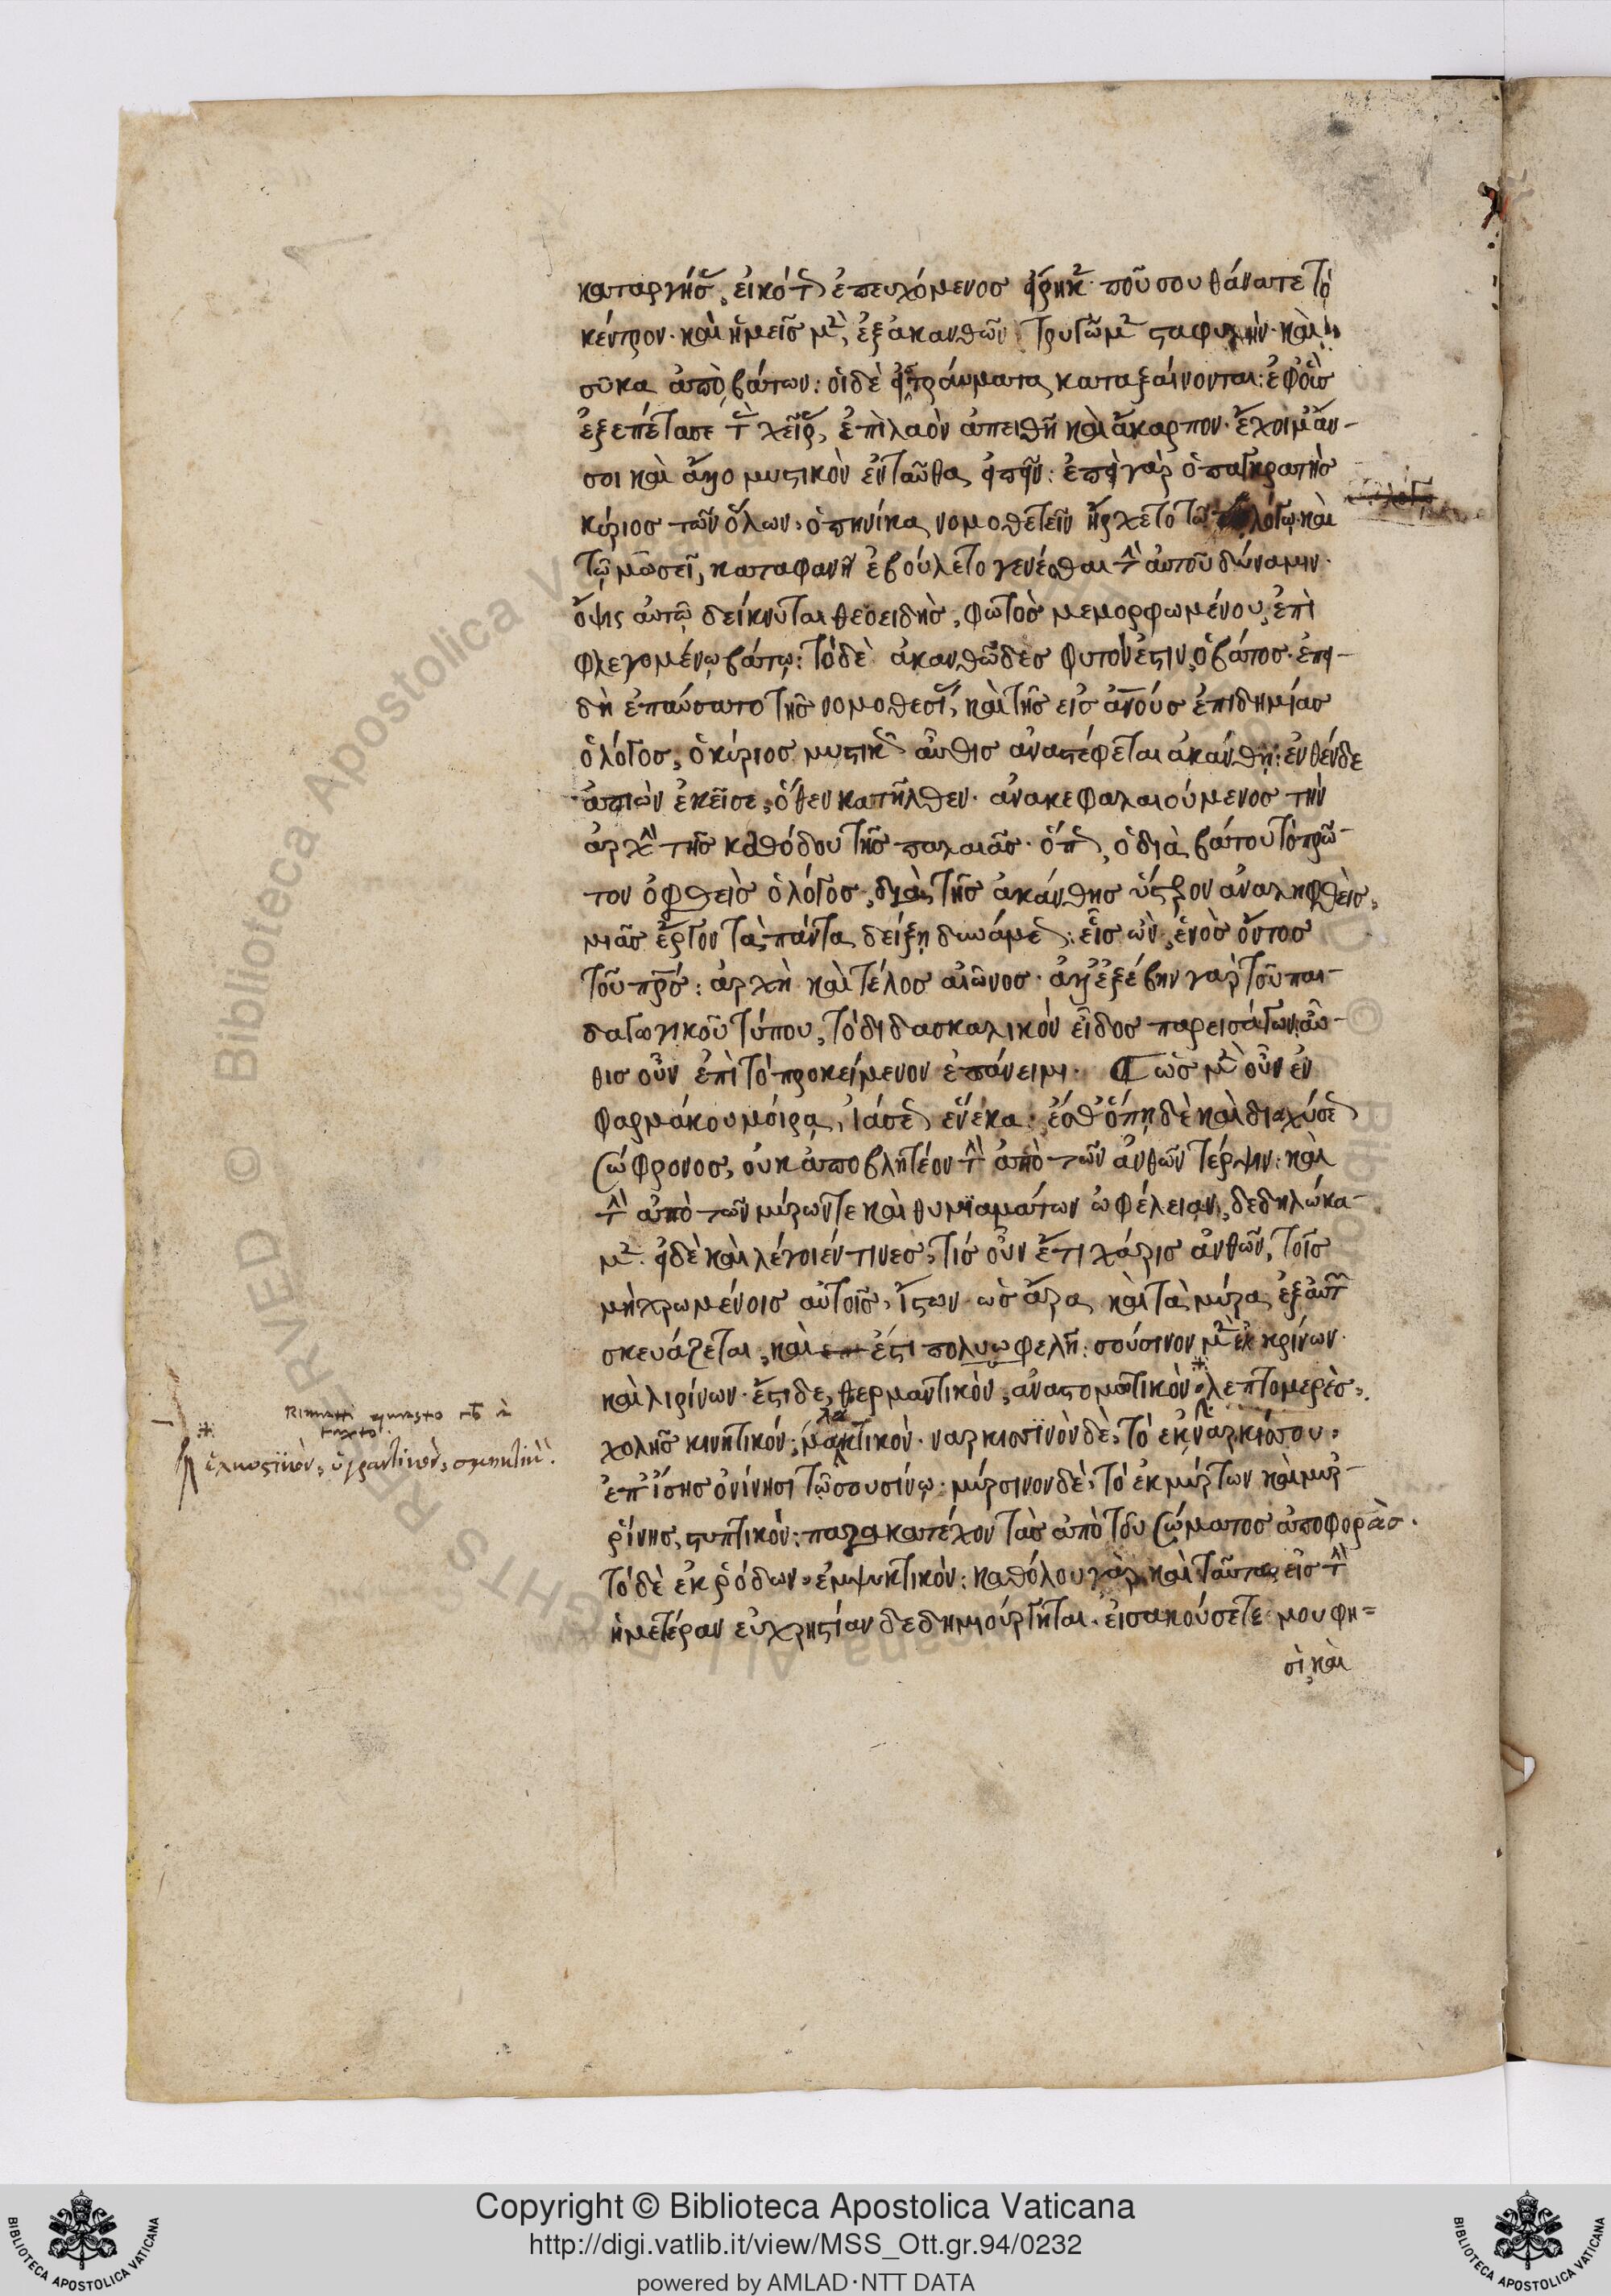 καταργήσας, εἰκότως ἐπευχόμενος εἴρηκε· ποῦ σου θάνατε τὸ
κέντρον· καὶ ἡμεῖς μὲν, ἐξ ἀκανθῶν τρυγῶμεν σταφυλὴν· καὶ
σῦκα ἀπὸ βάτων: οἱ δὲ εἰς τραύματα καταξαίνονται: ἐφ' οἷς
ἐξεπέτασε τὰς χεῖρας, ἐπὶ λαὸν ἀπειθῆ καὶ ἄκαρπον· ἔχοιμ' ἄν
σοι καὶ ἄλλο μυστικὸν ἐνταῦθα εἰπεῖν: ἐπεὶ γὰρ ὁ παγκρατὴς
κύριος τῶν ὅλων, ὁπηνίκα νομοθετεῖν ἤρχετο τῷ λόγῳ, καὶ
τῷ μωσεῖ, καταφανῆ ἐβούλετο γενέσθαι τὴν αὐτοῦ δύναμιν·
ὄψις αὐτῷ δείκνυται θεοειδὴς, φωτὸς μεμορφωμένου, ἐπὶ
φλεγομένῳ βάτῳ: τὸ δὲ ἀκανθῶδες φυτόν ἐστιν, ὁ βάτος· ἐπει-
δὴ ἐπαύσατο τῆς νομοθεσίας, καὶ τῆς εἰς ἀνους ἐπιδημίας
ὁ λόγος, ὁ κύριος μυστικῶς αὖθις ἀναστέφεται ἀκάνθῃ: ἐνθένδε
ἀπιὼν ἐκεῖσε, ὅθεν κατῆλθεν· ἀνακεφαλαιούμενος τὴν
ἀρχὴν τῆς καθόδου τῆς παλαιᾶς· ὅπως, ὁ διὰ βάτου τὸ πρῶ-
τον ὀφθεὶς ὁ λόγος, διὰ τῆς ἀκάνθης ὕστερον ἀναληφθεὶς,
μιᾶς ἔργον τὰ πάντα δείξῃ δυνάμεως: εἷς ὢν, ἑνὸς ὄντος
τοῦ πρς: ἀρχὴ καὶ τέλος αἰῶνος· ἀλλ' ἐξέβην γὰρ τοῦ παι-
δαγωγικοῦ τύπου, τὸ διδασκαλικὸν εἶδος παρεισάγων: αὖ-
θις οὖν ἐπὶ τὸ προκείμενον ἐπάνειμι· ὡς μὲν οὖν ἐν
φαρμάκου μοίρᾳ, ἰάσεως ἕνεκα· ἔσθ' ὅπῃ δὲ καὶ διαχύσεως
σώφρονος, οὐκ ἀποβλητέον τὴν ἀπὸ τῶν ἀνθῶν τέρψιν: καὶ
τὴν ἀπὸ τῶν μύρων τε καὶ θυμιαμάτων ὠφέλειαν, δεδηλώκα-
μεν· εἰ δὲ καὶ λέγοιέν τινες, τίς οὖν ἔτι χάρις ἀνθῶν, τοῖς
μὴ χρωμένοις αὐτοῖς, ἴστων ὡς ἄρα καὶ τὰ μύρα ἐξ αὐτῶν
σκευάζεται, καὶ ἐστι πολυωφελῆ: σούσινον μὲν ἐκ κρίνων·
καὶ λιρίνων· ἔστι δε, θερμαντικὸν, ἀναστομωτικὸν, λεπτομερὲς,
ἑλκυστικὸν, ὑγραντικὸν, σμηκτικὸν:
χολῆς κινητικόν, μαλακτικὸν· ναρκισσϊνὸν δὲ, τὸ ἐκ ναρκίσσου,
ἐπ' ἴσης ὀνίνησι τῷ σουσίνῳ· μύρσινον δὲ, τὸ ἐκ μύρτων καὶ μυρ-
ρίνης, στυπτικὸν: παρακατέχον τὰς ἀπὸ τοῦ σώματος ἀποφορὰς.
τὸ δὲ ἐκ ῥόδων, ἐμψυκτικὸν: καθόλου γὰρ, καὶ ταῦτα, εἰς τὴν
ἡμετέραν εὐχρηστίαν δεδημιούργηται· εἰσακούσετε μου φη=
σὶ, καὶ
Copyright © Biblioteca Apostolica Vaticana
http://digi.vatlib.it/view/MSS_Ott.gr.94/0232
powered by AMLAD·NTT DATA
BIBLIOTECA APOSTOLICA VATICANA
BIBLIOTECA APOSTOLICA VATICANA